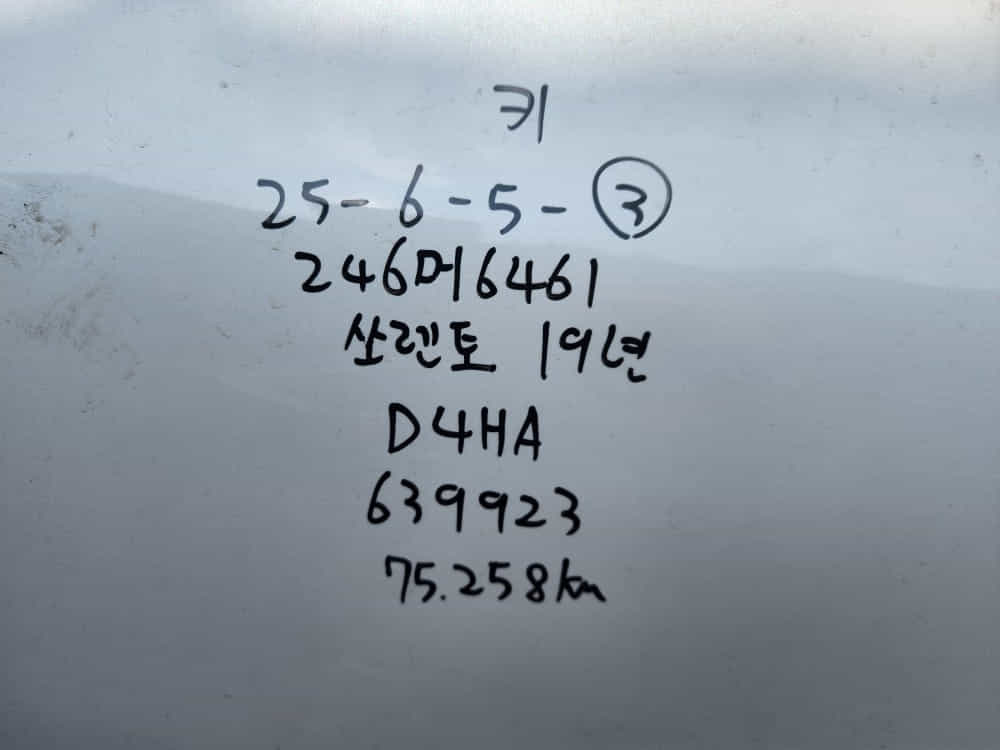 키
25-6-5-③
246머6461
쏘렌토 19년
D4HA
639923
75.258km